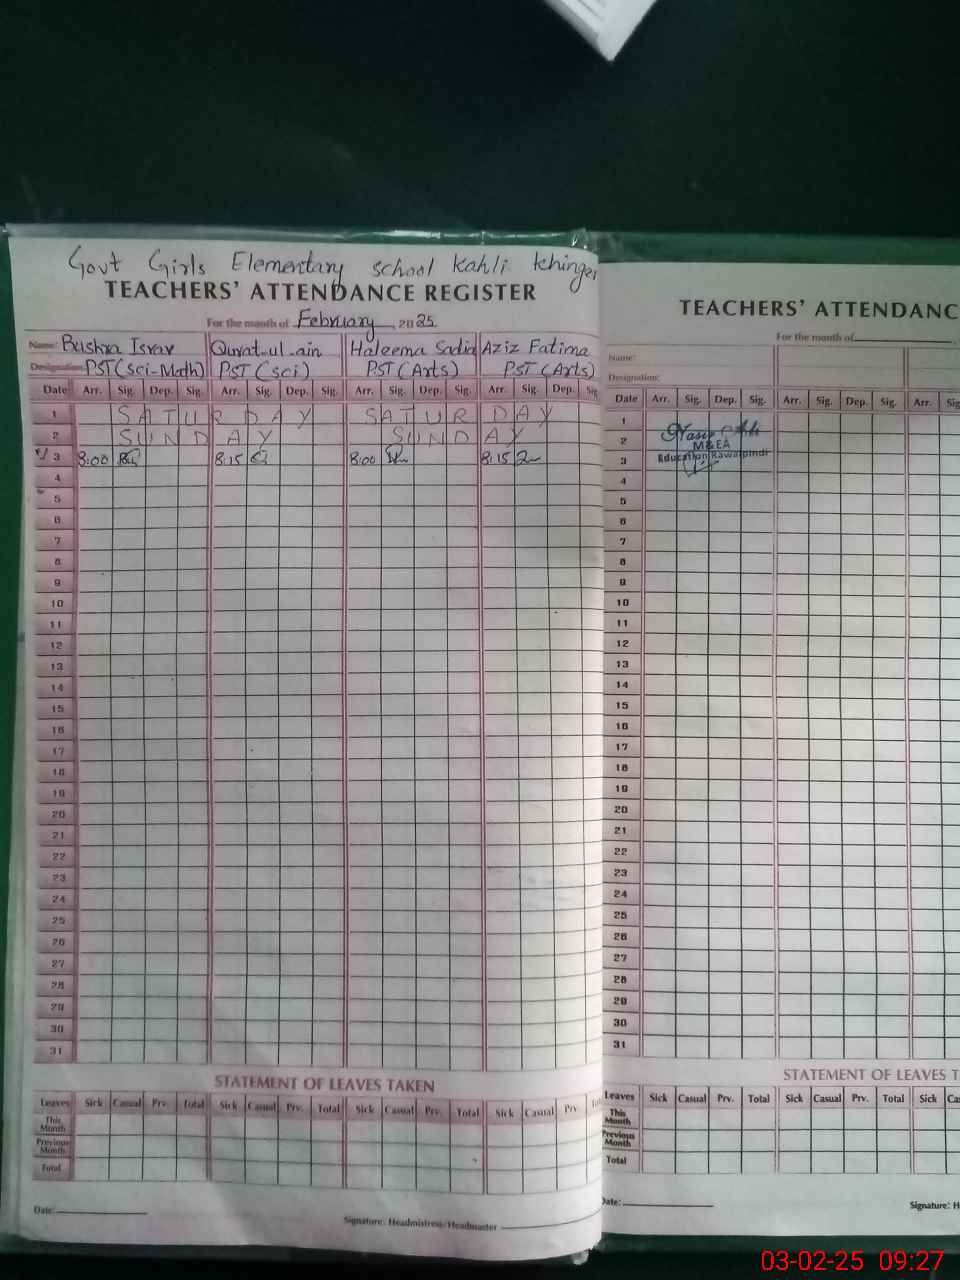 Govt Girls Elementary school Kahli Khinger
TEACHERS' ATTENDANCE REGISTER
For the month of February, 2025
Name: Bushra Israr Qurat-ul-ain Haleema Sadia Aziz Fatima
Designation: PST (Sci-Math) PST (Sci) PST (Arts) PST (Arts)
Date Arr. Sig. Dep. Sig. Arr. Sig. Dep. Sig. Arr. Sig. Dep. Sig. Arr. Sig. Dep. Sig
1 SATURDAY SATURDAY
2 SUNDAY SUNDAY
3 8:00 8:15 8:00 8:15
4
5
6
7
8
9
10
11
12
13
14
15
16
17
18
19
20
21
22
23
24
25
26
27
28
29
30
31
STATEMENT OF LEAVES TAKEN
Leaves Sick Casual Prv. Total Sick Casual Prv. Total Sick Casual Prv. Total Sick Casual Prv.
This Month
Previous Month
Total
Date:
Signature: Headmistress/Headmaster
TEACHERS' ATTENDANC
For the month of
Name:
Designation:
Date Arr. Sig. Dep. Sig. Arr. Sig. Dep. Sig. Arr. Sig.
1
2 Nasir Ali
M&EA
3 Education Rawalpindi
4
5
6
7
8
9
10
11
12
13
14
15
16
17
18
19
20
21
22
23
24
25
26
27
28
29
30
31
STATEMENT OF LEAVES T
Leaves Sick Casual Prv. Total Sick Casual Prv. Total Sick Cas
This Month
Previous Month
Total
Date:
Signature: H
03-02-25 09:27